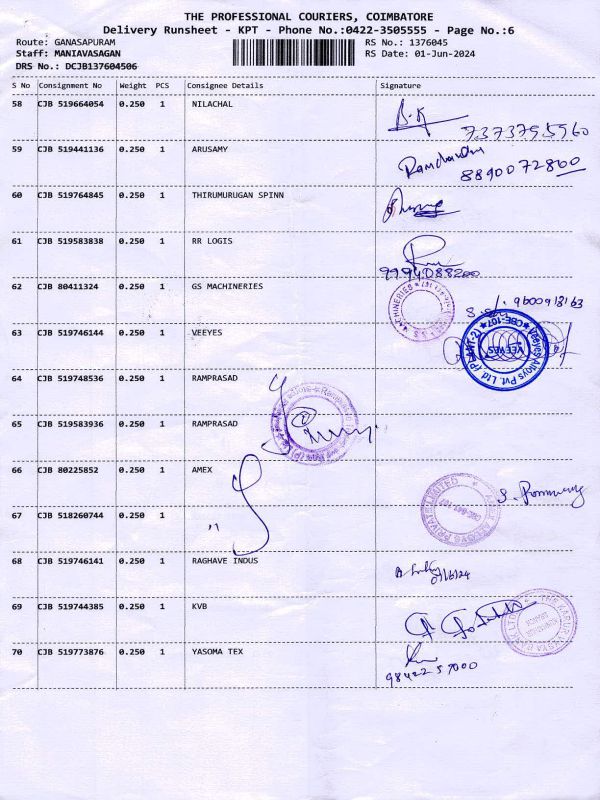 THE PROFESSIONAL COURIERS, COIMBATORE
Delivery Runsheet - KPT - Phone No.:0422-3505555 - Page No.:6
Route: GANASAPURAM
RS No.: 1376045
Staff: MANIAVASAGAN
RS Date: 01-Jun-2024
DRS No.: DCJB137604506
S No Consignment No Weight PCS Consignee Details Signature
58 CJB 519664054 0.250 1 NILACHAL
7373795960
59 CJB 519441136 0.250 1 ARUSAMY
8890072800
60 CJB 519764845 0.250 1 THIRUMURUGAN SPINN
61 CJB 519583838 0.250 1 RR LOGIS
9994088200
62 CJB 80411324 0.250 1 GS MACHINERIES
63 CJB 519746144 0.250 1 VEEYES
Veeyes Alloys Pvt. Ltd
VEEYES
64 CJB 519748536 0.250 1 RAMPRASAD
65 CJB 519583936 0.250 1 RAMPRASAD
66 CJB 80225852 0.250 1 AMEX
67 CJB 518260744 0.250 1 "
68 CJB 519746141 0.250 1 RAGHAVE INDUS
69 CJB 519744385 0.250 1 KVB
70 CJB 519773876 0.250 1 YASOMA TEX
98422 57000